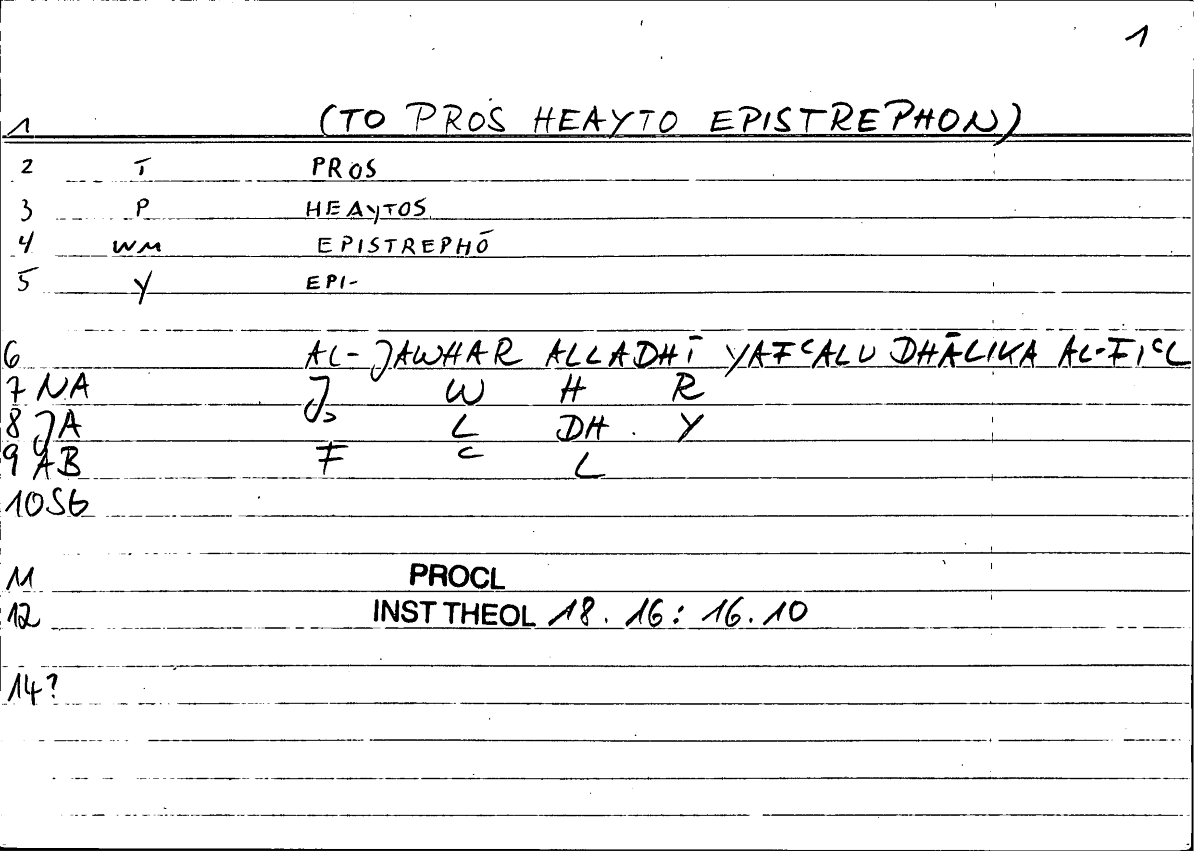 1
1 (TO PROS HEAYTO EPISTREPHON)
2 T PROS
3 P HEAYTOS
4 WM EPISTREPHŌ
5 Y EPI-
6 AL-JAWHAR ALLADHĪ YAFᶜALU DHĀLIKA AL-FIᶜL
7 NA J W H R
8 JA L DH Y
9 AB F ᶜ L
10 SG
11 PROCL
12 INST THEOL 18.16: 16.10
14?